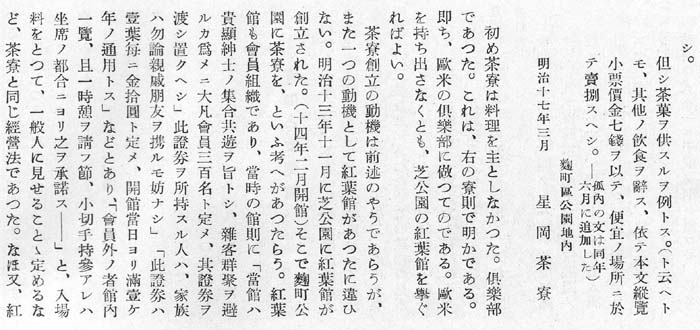 シ。
但シ茶菓ヲ供スルヲ例トス。(ト云ヘト
モ、其他ノ飮食ヲ辭ス、依テ本文縱覽
小票價金七錢ヲ以テ、便宜ノ場所ニ於
テ賣捌スヘシ。――孤內の文は同年六月に追加した)
麴町區公園地內
明治十七年三月 星岡茶寮
初め茶寮は料理を主としなかつた。俱樂部
であつた。これは、右の寮則で明かである。
卽ち、歐米の俱樂部に倣つてのである。歐米
を持ち出さなくとも、芝公園の紅葉館を擧ぐ
ればよい。
茶寮創立の動機は前述のやうであらうが、
また一つの動機として紅葉館があつたに違ひ
ない。明治十三年十一月に芝公園に紅葉館が
創立された。(十四年二月開館)そこで麴町公
園に茶寮を、といふ考へがあつたらう。紅葉
館も會員組織であり、當時の館則に「當館ハ
貴顯紳士ノ集合共遊ヲ旨トシ、雜客群聚ヲ避
ルカ爲メニ大凡會員三百名ト定メ、其證券ヲ
渡シ置クヘシ」此證券ヲ所持スル人ハ、家族
ハ勿論親戚朋友ヲ携ルモ妨ナシ」「此證券ハ
壹葉每ニ金拾圓ト定メ、開館當日ヨリ滿壹ケ
年ノ通用トス」などとあり「會員外ノ者館內
一覽、且一時憩ヲ請フ節、小切手持參アレハ
坐席ノ都合ニヨリ之ヲ承諾ス――」と、入場
料をとつて、一般人に見せることゝ定めるな
ど、茶寮と同じ經營法であつた。なほ又、紅